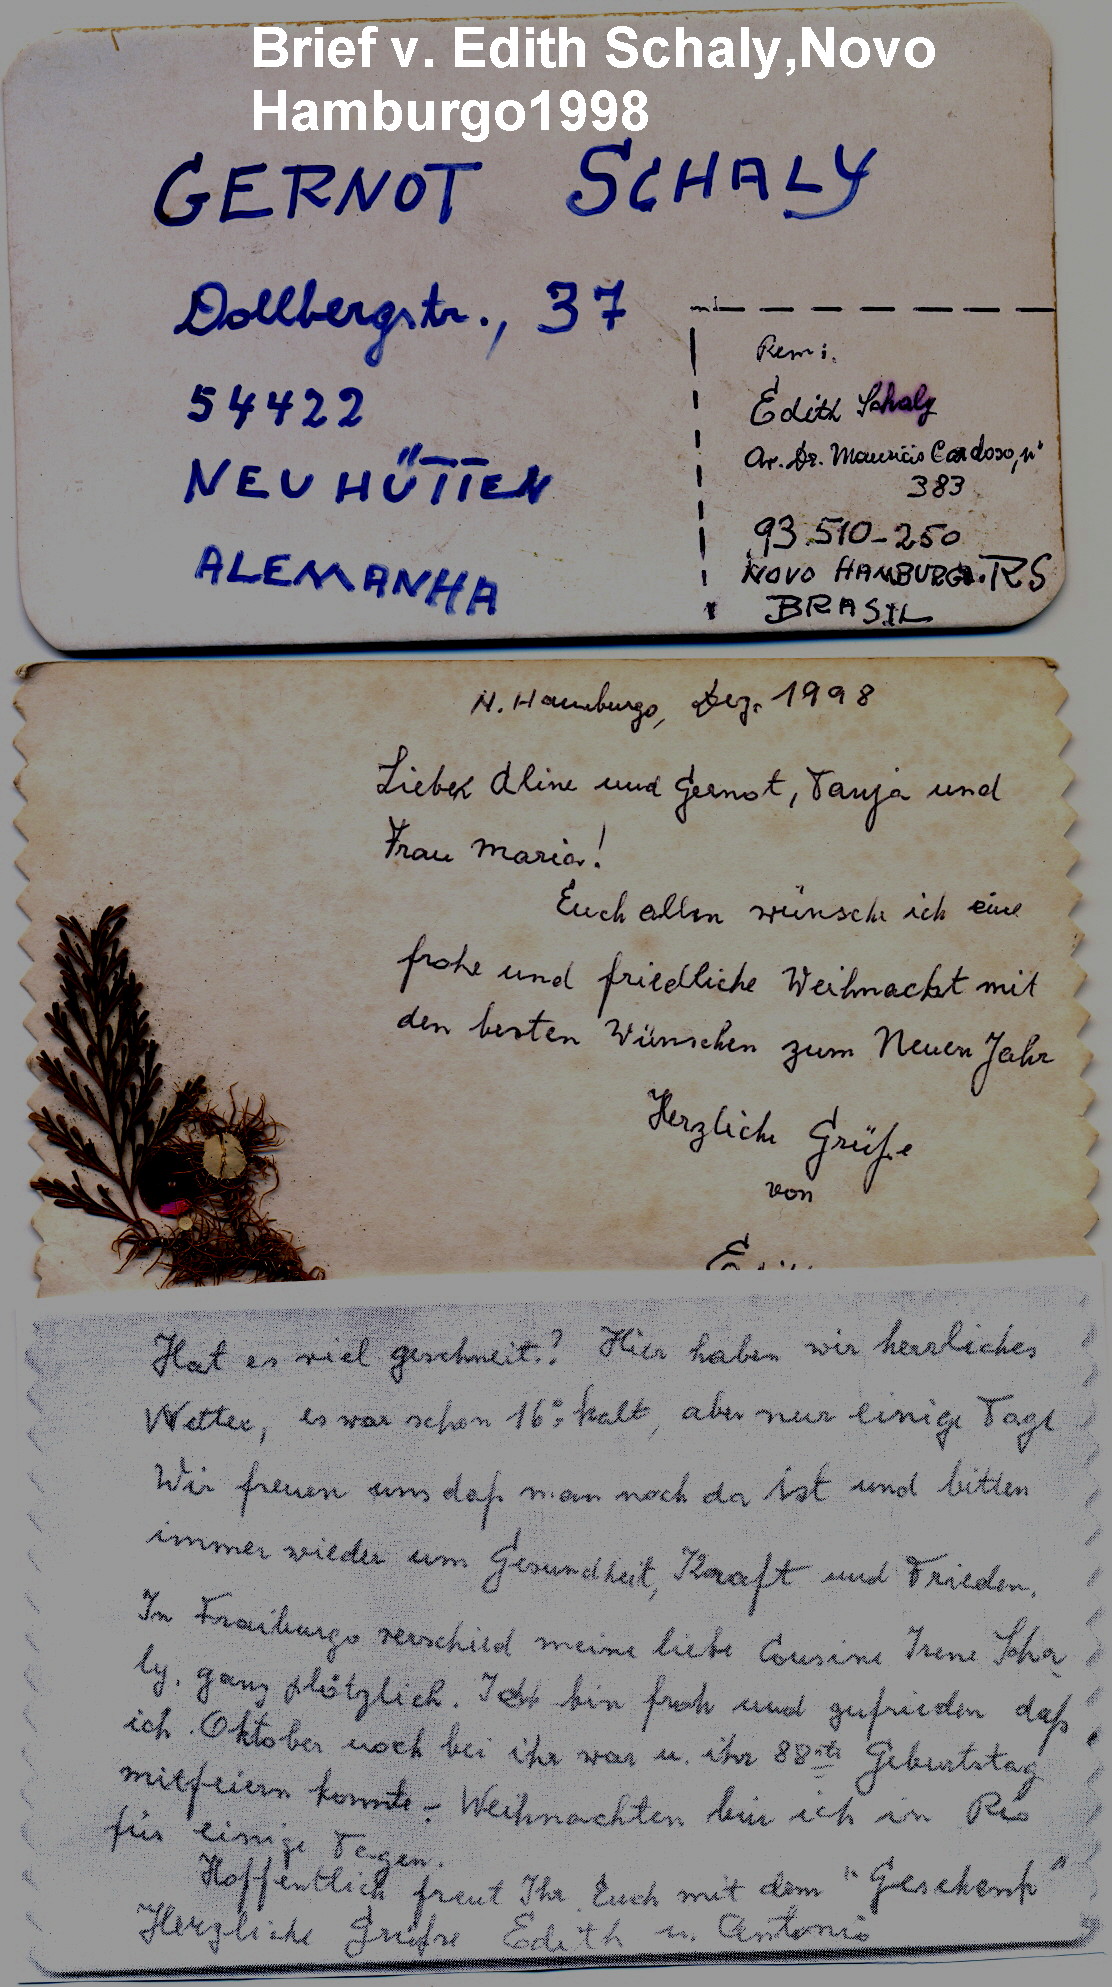 Brief v. Edith Schaly,Novo
Hamburgo1998
GERNOT SCHALY
Dollbergstr., 37
54422
NEUHÜTTEN
ALEMANHA
Remi.
Edith Schaly
Av. Dr. Mauricio Cardoso, nº
383
93.510-250
NOVO HAMBURGO.RS
BRASIL
N. Hamburgo, Dez. 1998
Liebe Aline und Gernot, Tanja und
Frau Maria!
Euch allen wünsche ich eine
frohe und friedliche Weihnacht mit
den besten Wünschen zum Neuen Jahr
Herzliche Grüße
von
Edith
Hat es viel geschneit? Hier haben wir herrliches
Wetter, es war schon 16° kalt, aber nur einige Tage
Wir freuen uns daß man noch da ist und bitten
immer wieder um Gesundheit, Kraft und Frieden.
In Fraiburgo verschied meine liebe Cousine Irene Scha
ly, ganz plötzlich. Ich bin froh und zufrieden daß
ich Oktober noch bei ihr war u. ihr 88ste Geburtstag
mitfeiern konnte - Weihnachten bin ich in Rio
für einige Tagen.
Hoffentlich freut Ihr Euch mit dem "Geschenk"
Herzliche Grüße Edith u. Antonio